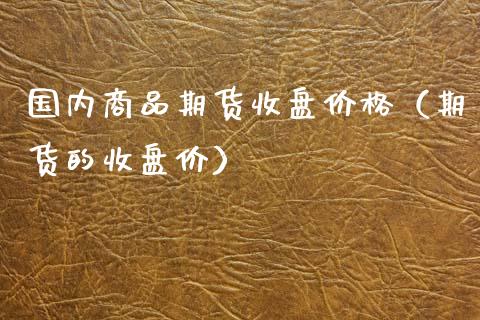 国内商品期货收盘价格（期
货的收盘价）